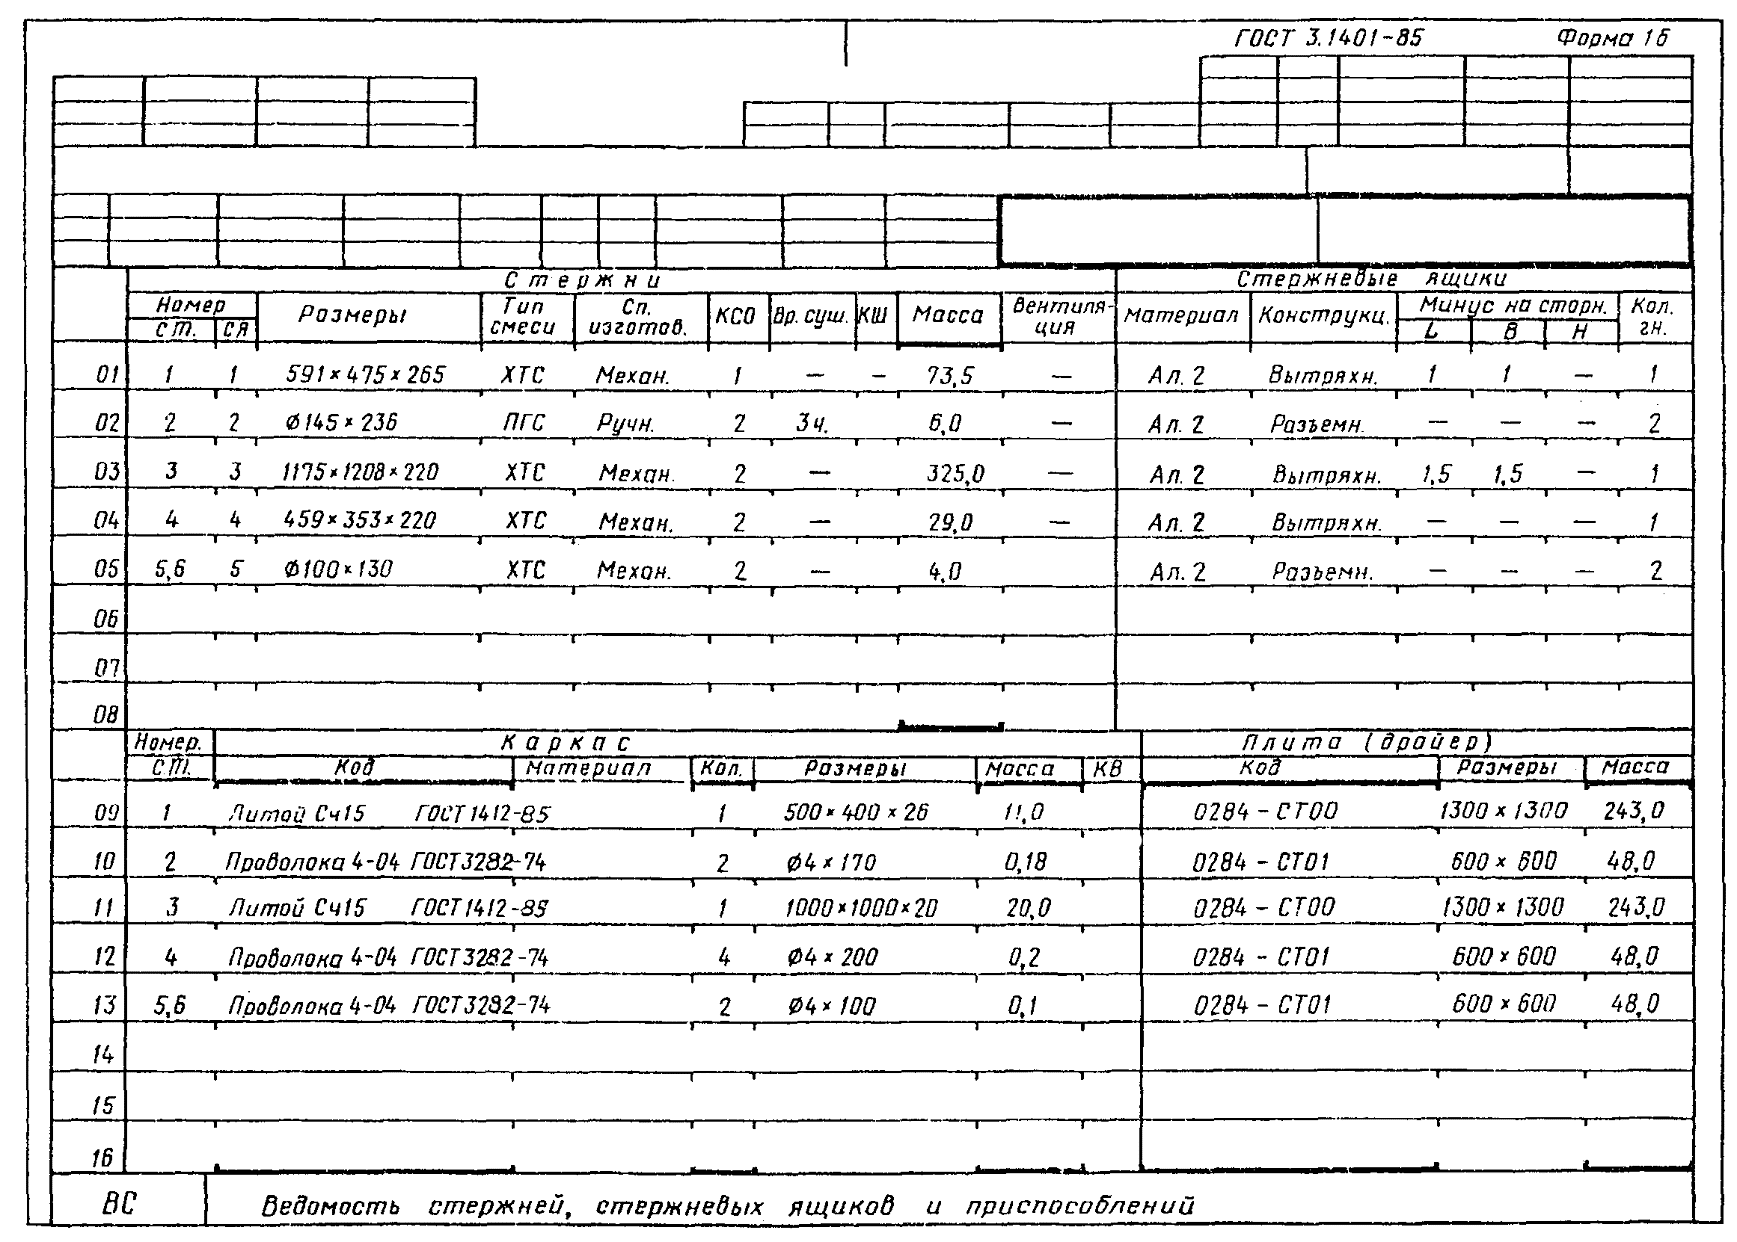 ГОСТ 3.1401-85 Форма 1б
Стержни Стержневые ящики
Номер Размеры Тип смеси Сп. изготов. КСО Вр. суш. КШ Масса Вентиляция Материал Конструкц. Минус на сторн. Кол. гн.
ст. ся L B H
01 1 1 591×475×265 ХТС Механ. 1 — — 73,5 — Ал. 2 Вытряхн. 1 1 — 1
02 2 2 Ø145×236 ПГС Ручн. 2 3ч. 6,0 — Ал. 2 Разъемн. — — — 2
03 3 3 1175×1208×220 ХТС Механ. 2 — 325,0 — Ал. 2 Вытряхн. 1,5 1,5 — 1
04 4 4 459×353×220 ХТС Механ. 2 — 29,0 — Ал. 2 Вытряхн. — — — 1
05 5,6 5 Ø100×130 ХТС Механ. 2 — 4,0 Ал. 2 Разъемн. — — — 2
06
07
08
Номер. Каркас Плита (драйер)
ст. Код Материал Кол. Размеры Масса КВ Код Размеры Масса
09 1 Литой Сч15 ГОСТ1412-85 1 500×400×26 11,0 0284-СТ00 1300×1300 243,0
10 2 Проволока 4-04 ГОСТ3282-74 2 Ø4×170 0,18 0284-СТ01 600×600 48,0
11 3 Литой Сч15 ГОСТ1412-85 1 1000×1000×20 20,0 0284-СТ00 1300×1300 243,0
12 4 Проволока 4-04 ГОСТ3282-74 4 Ø4×200 0,2 0284-СТ01 600×600 48,0
13 5,6 Проволока 4-04 ГОСТ3282-74 2 Ø4×100 0,1 0284-СТ01 600×600 48,0
14
15
16
ВС Ведомость стержней, стержневых ящиков и приспособлений